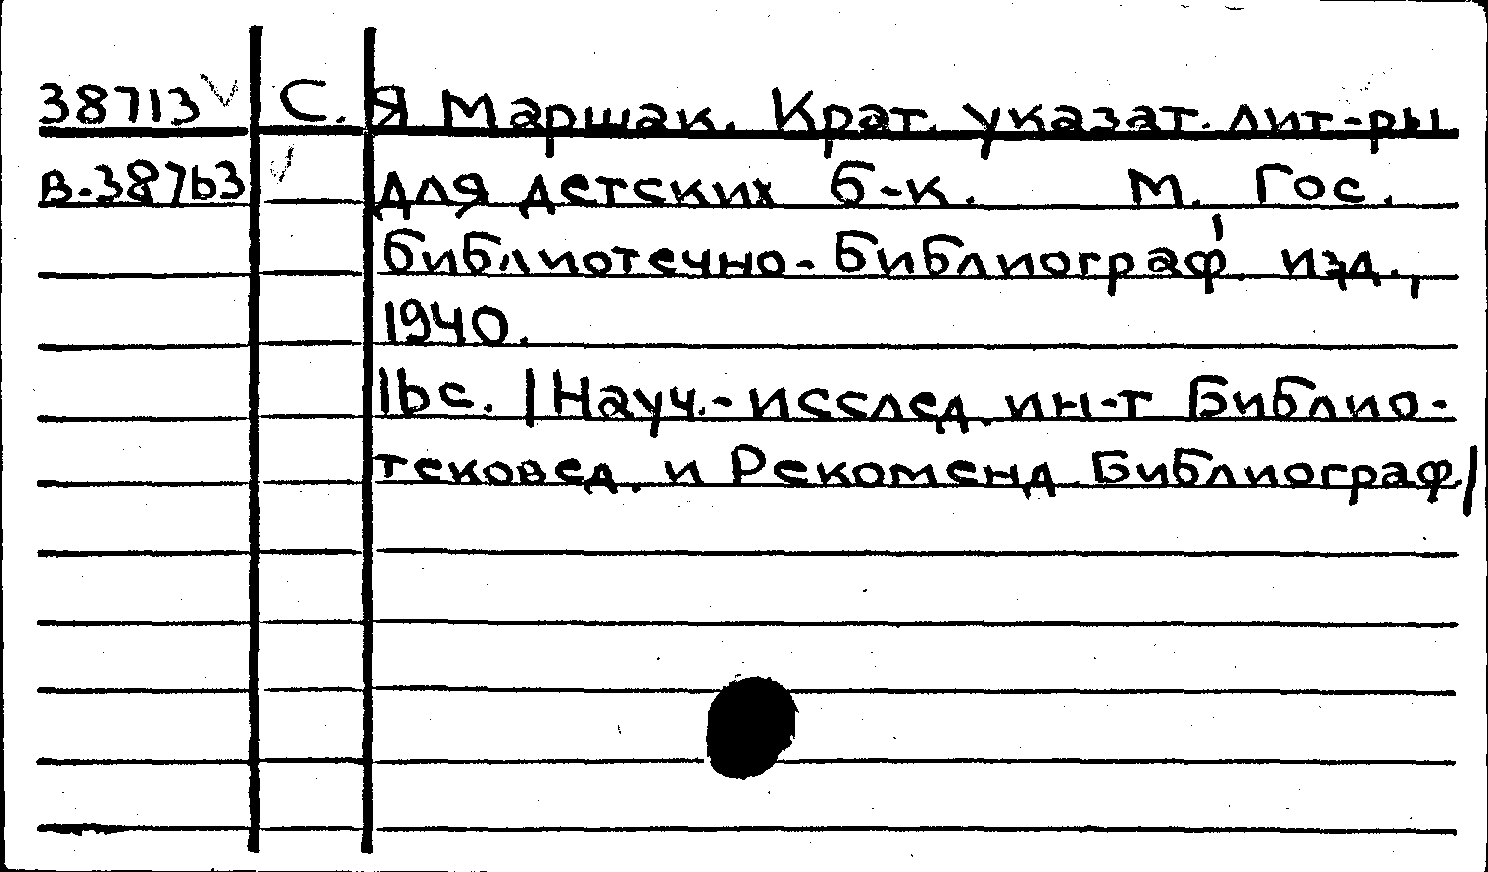 38713 С. Я Маршак. Крат. указат. лит-ры
В-38763 для детских б-к. М. Гос.
библиотечно-библиограф. изд.,
1940.
16с. |Науч.-исслед. ин-т Библио-
тековед. и Рекоменд. Библиограф|